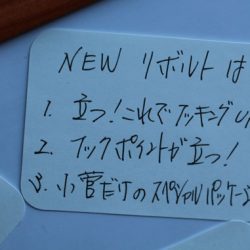 NEW リボルトは
1. 立つ!これでフッキングU
2. フックポイントが立つ!
3. 小菅だけのスペシャルパッケージ